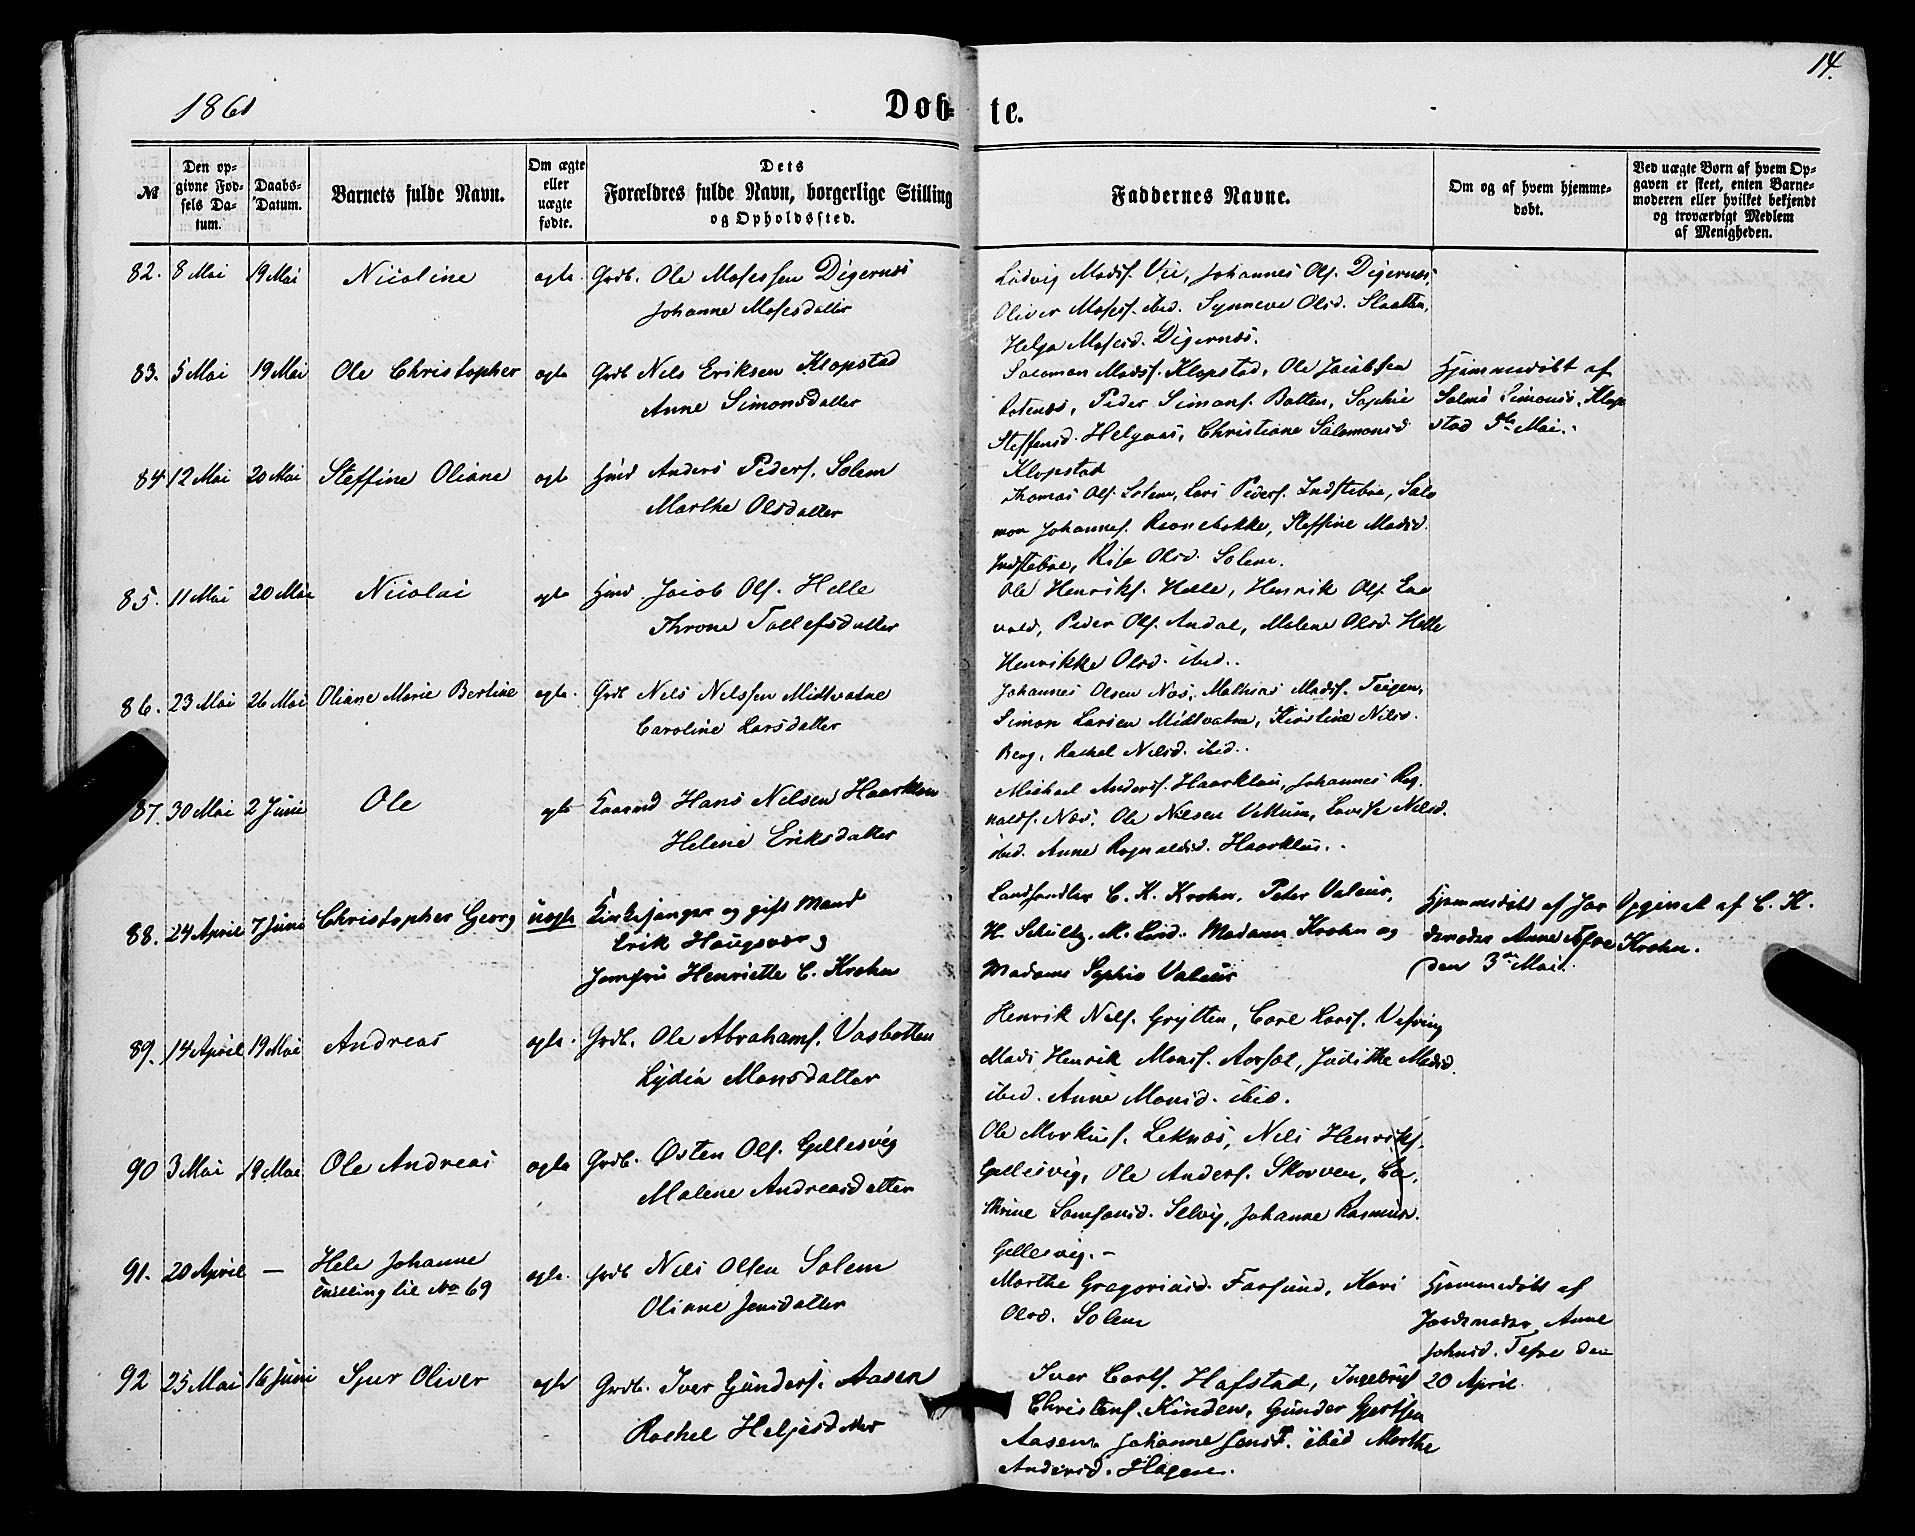 14.
1861
Døb- te.
№
Den op-
givne Fød-
sels Da-
tum.
Daabs-
Datum.
Barnets fulde Navn.
Om ægte
eller
uægte
fødte.
Dets
Forældres fulde Navn, borgerlige Stilling
og Opholdssted.
Faddernes Navne.
Om og af hvem hjemme-
døbt.
Ved uægte Børn af hvem Op-
gaven er skeet, enten Barne-
moderen eller hvilket bekjendt
og troværdigt Medlem
af Menigheden.
82. 8 Mai 19 Mai Nicoline ægte. Grdb. Ole Mosessen Digernæs
Johanne Mosesdatter
Ludvig Mads. Vie, Johannes Ols. Digernæs,
Oliver Moses. ibid. Synneve Olsd. Slaatten,
Helga Mosesd. Digernæs.
83. 5 Mai 19 Mai Ole Christopher ægte Grdb Nels Eriksen Klopstad
Anne Simonsdatter
Salomon Mads. Klopstad, Ole Jacobsen
Peder Simons. Botten, Sophie
Steffensd. Helgaas, Christiane Salomonsd
Klopstad
Hjemmedøbt af
Salmo Simons. Klop
stad 5te Mai.
84 12 Mai 20 Mai Steffine Oliane ægte Hmd Anders Peders. Solem
Marthe Olsdatter
Thomas Ols. Solem, Lars Peders. Indstebøe, Salo
mon Johannes. Steffine Madsd.
Indstebøe, Olsd. Solem.
85. 11 Mai 20 Mai Nicolai ægte Hmd Jacob Ols. Helle
Throne Tollefsdatter
Ole Henriks. Helle, Henrik Ols. Eae
vold, Peder Ols. Andal, Malene Olsd. Helle
Henrikke Olsd. ibid.
86. 23 Mai 26 Mai Oliane Marie Bertine ægte. Grdb Nels Nelssen Midtvatne
Caroline Larsdatter
Johannes Olsen Næs, Mathias Mads. Teigen,
Simon Larsen Midtvatne, Kirstine Nilsd.
Berg, Rachel Nelsd. ibid.
87. 30 Mai 2 Juni Ole ægte Hans Nelsen Haarklau
Helene Eriksdatter
Michael Anders. Haarklau, Johannes Rag
nalds. Næs, Ole Nilsen Vettum, Lovise Nilsd.
ibid. Anne Ragnaldsd. Haarklau.
88. 24 April 7 Juni Christopher Georg uægte Kirkesanger og gift Mand
Erik Haugsvær og
Jomfru Henriette C. Krohn
Landhandler C. K. Krohn, Peter Valeur,
H. Schultz, M. Lind. Madame Krohn og
Madame Sophie Valeur
Hjemmedøbt af Jor
demoder Anne Tefre
den 3de Mai.
Opgivet af C. K.
Krohn.
89. 14 April 19 Mai Andreas ægte. Grdb. Ole Abrahams. Vasbotten
Lydia Monsdatter
Henrik Nels. Grytten, Carl Lars. Vefring
Mads Henrik Mons. Aarsæt, Judithe Madsd.
ibid. Anne Monsd. ibid.
90 3 Mai 19 Mai Ole Andreas ægte Grdb. Østen Ols. Gellesvig
Malene Andreasdatter
Ole Markus. Leknæs, Nils Henriks.
Gellesvig, Ole Anders. Skorven, Ca
thrine Samsonsd. Selvig, Johanne Rasmusd.
Gellesvig.-
91. 20 April — Hele Johanne
Tvilling til No 69
ægte. Grdb Nils Olsen Solem
Oliane Jensdatter
Marthe Gregoriusd. Farsund, Kari
Olsd. Solem
Hjemmedøbt af
Jordemoder Anne
Johnsd. Tefre den
20 April
92 25 Mai 16 Juni Sjur Oliver ægte Grdb. Iver Gunders. Aasen
Rachel Heljesdatter
Iver Carls. Hafstad, Ingebrigt
Christens. Kinden, Gunder Gjertsen
Aasen, Johanne Jensd. ibid Marthe
Andersd. Hagen.